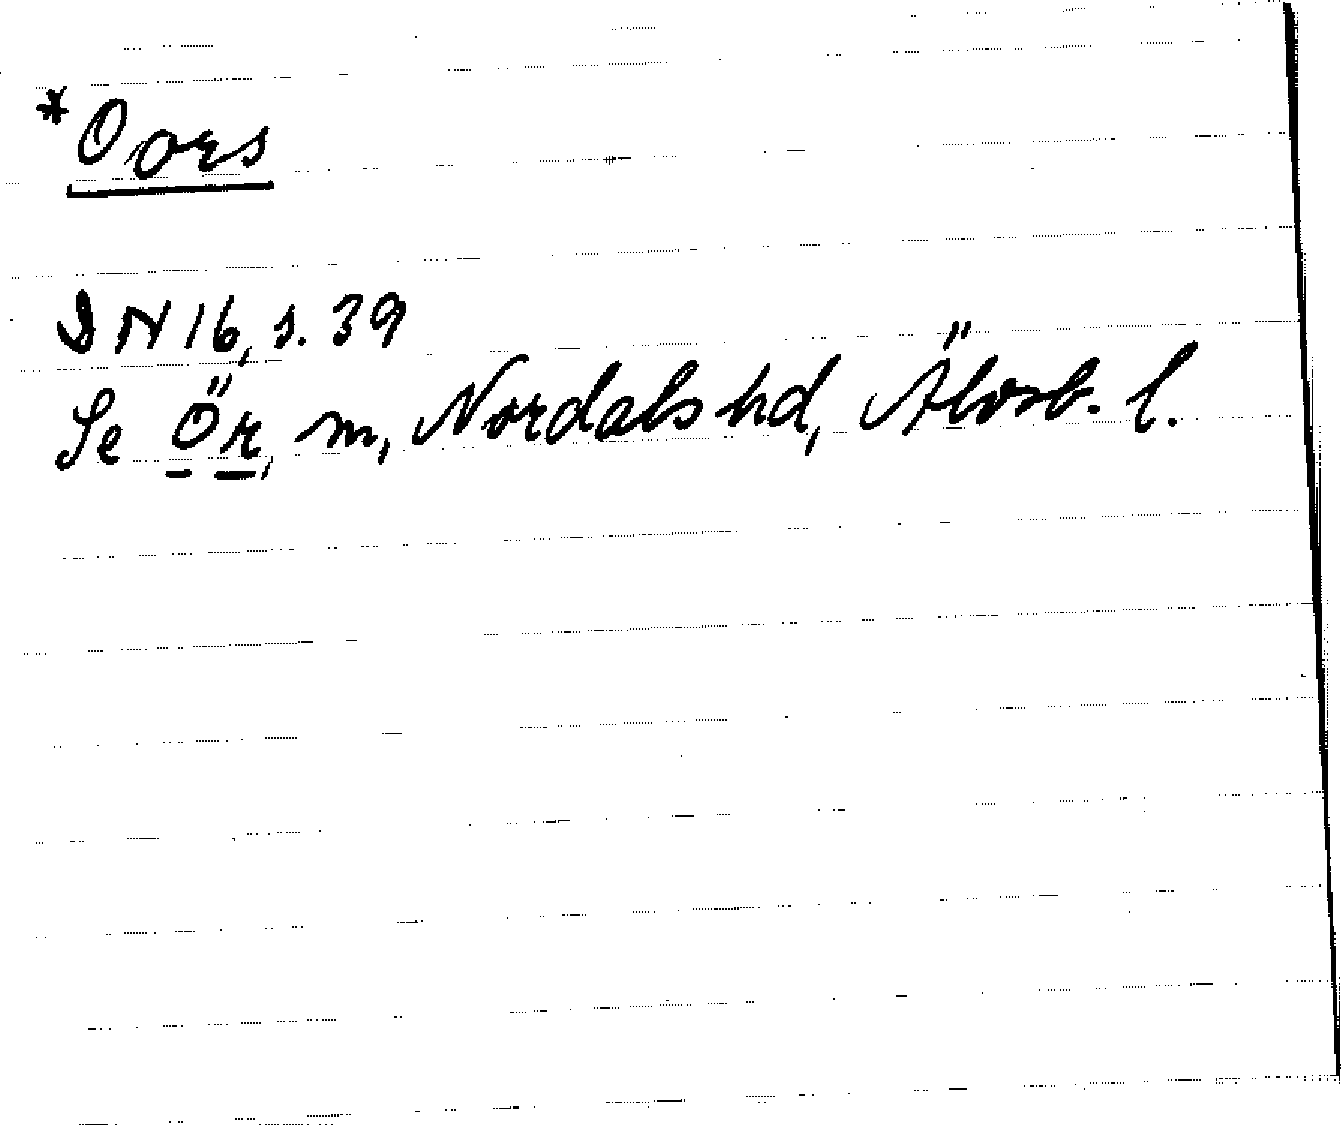 *Oors
DN 16, s. 39
Se Ör, m, Nordals hd, Älvsb. l.